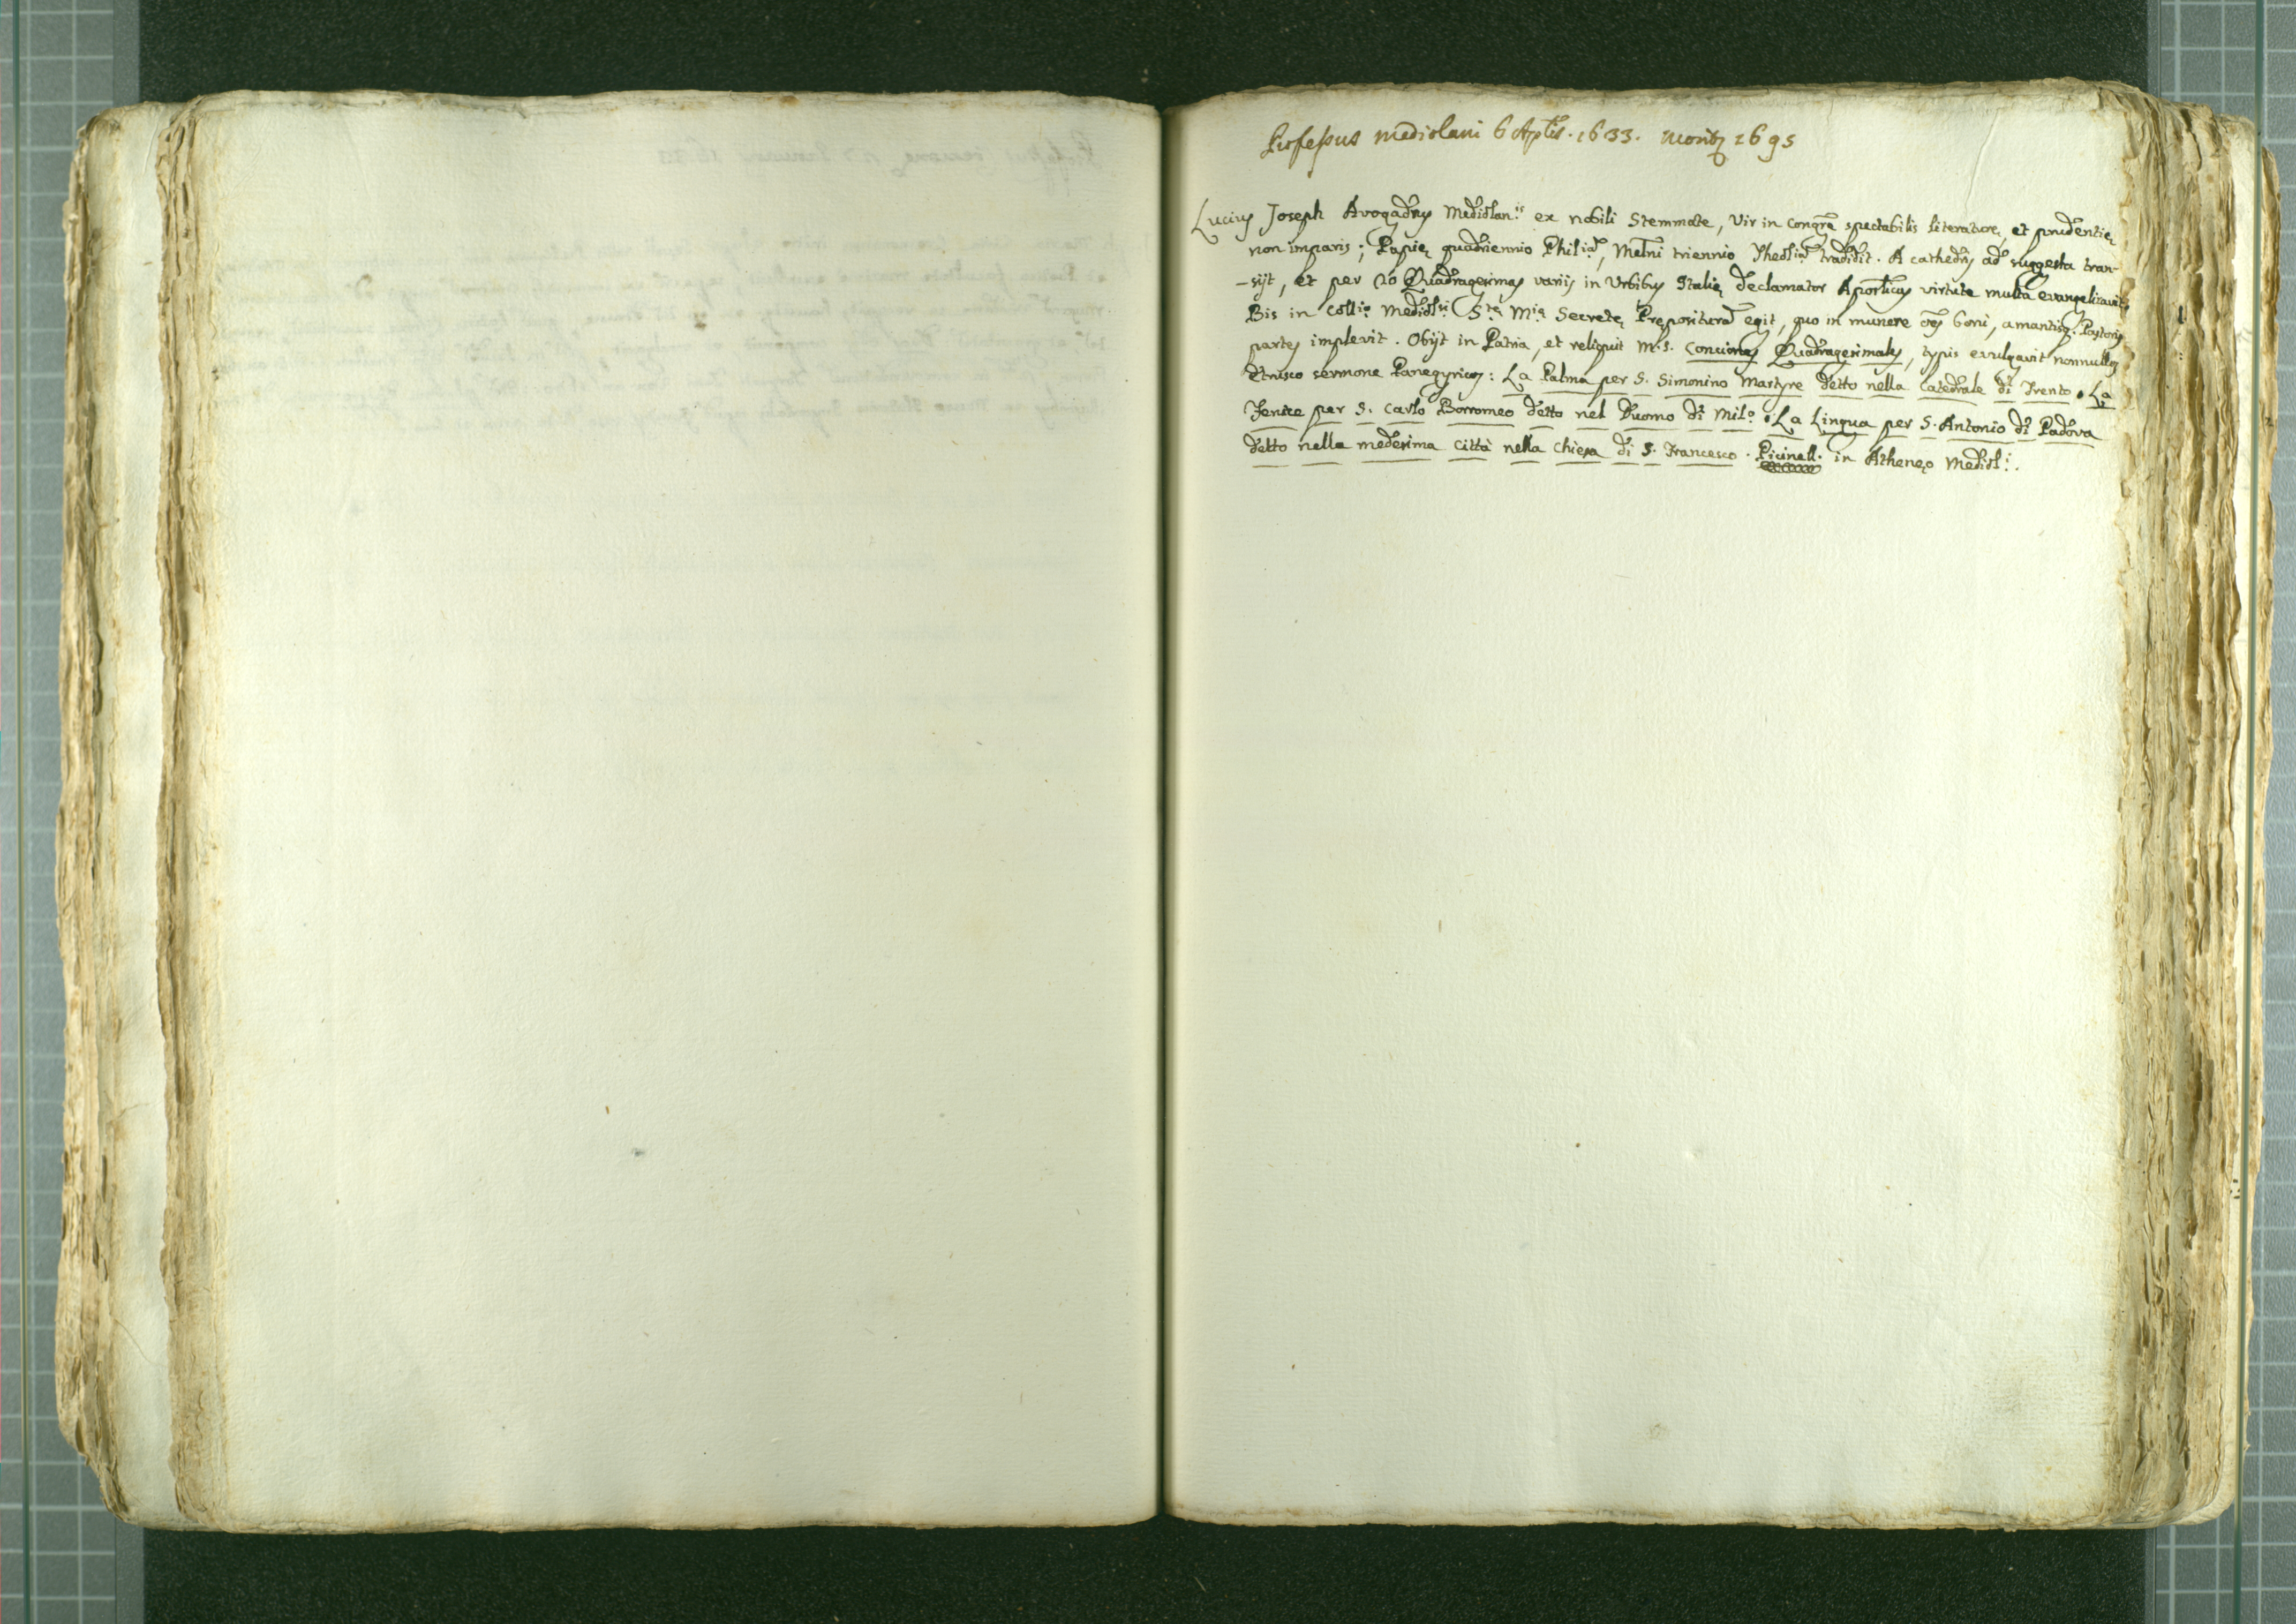 Professus Mediolani 6 Aplis. 1633. Moritz 1695
Lucius Joseph Avogadrus Mediolan.is ex nobili Stemmate, Vir in Congre spectabilis literaturę, et prudentię
non imparis; Papię quadriennio Philiã, Melni triennio Theoliã tradidit. A cathedris ad suggesta tran-
-sijt, et per 20 Quadragesimas varijs in Urbibus Italię declamator Apostlicus virtute multa evangelizavit
Bis in Collio Mediolni Stę Mię Secretę Pręposituram egit, quo in munere oẽs boni, amantisq. Pastoris
partes implevit. Obijt in Patria, et reliquit M.S. Conciones Quadragesimales, typis evulgavit nonnullos
Etrusco sermone Panegyricos: La Palma per S. Simonino Martyre detto nella Catedrale di Trento. La
Fenice per S. Carlo Borromeo detto nel Duomo di Mil.o. La Lingua per S. Antonio di Padova
detto nella medesima Città nella Chiesa di S. Francesco. Picinell. in Athenęo Mediol.i.